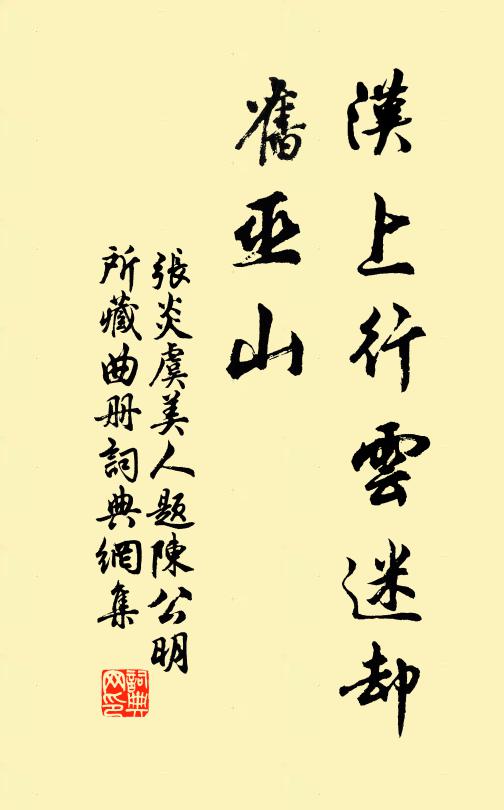 漢上行雲迷却
舊巫山
張炎虞美人題陳公明
所藏曲册詞典網集
詞典
网印